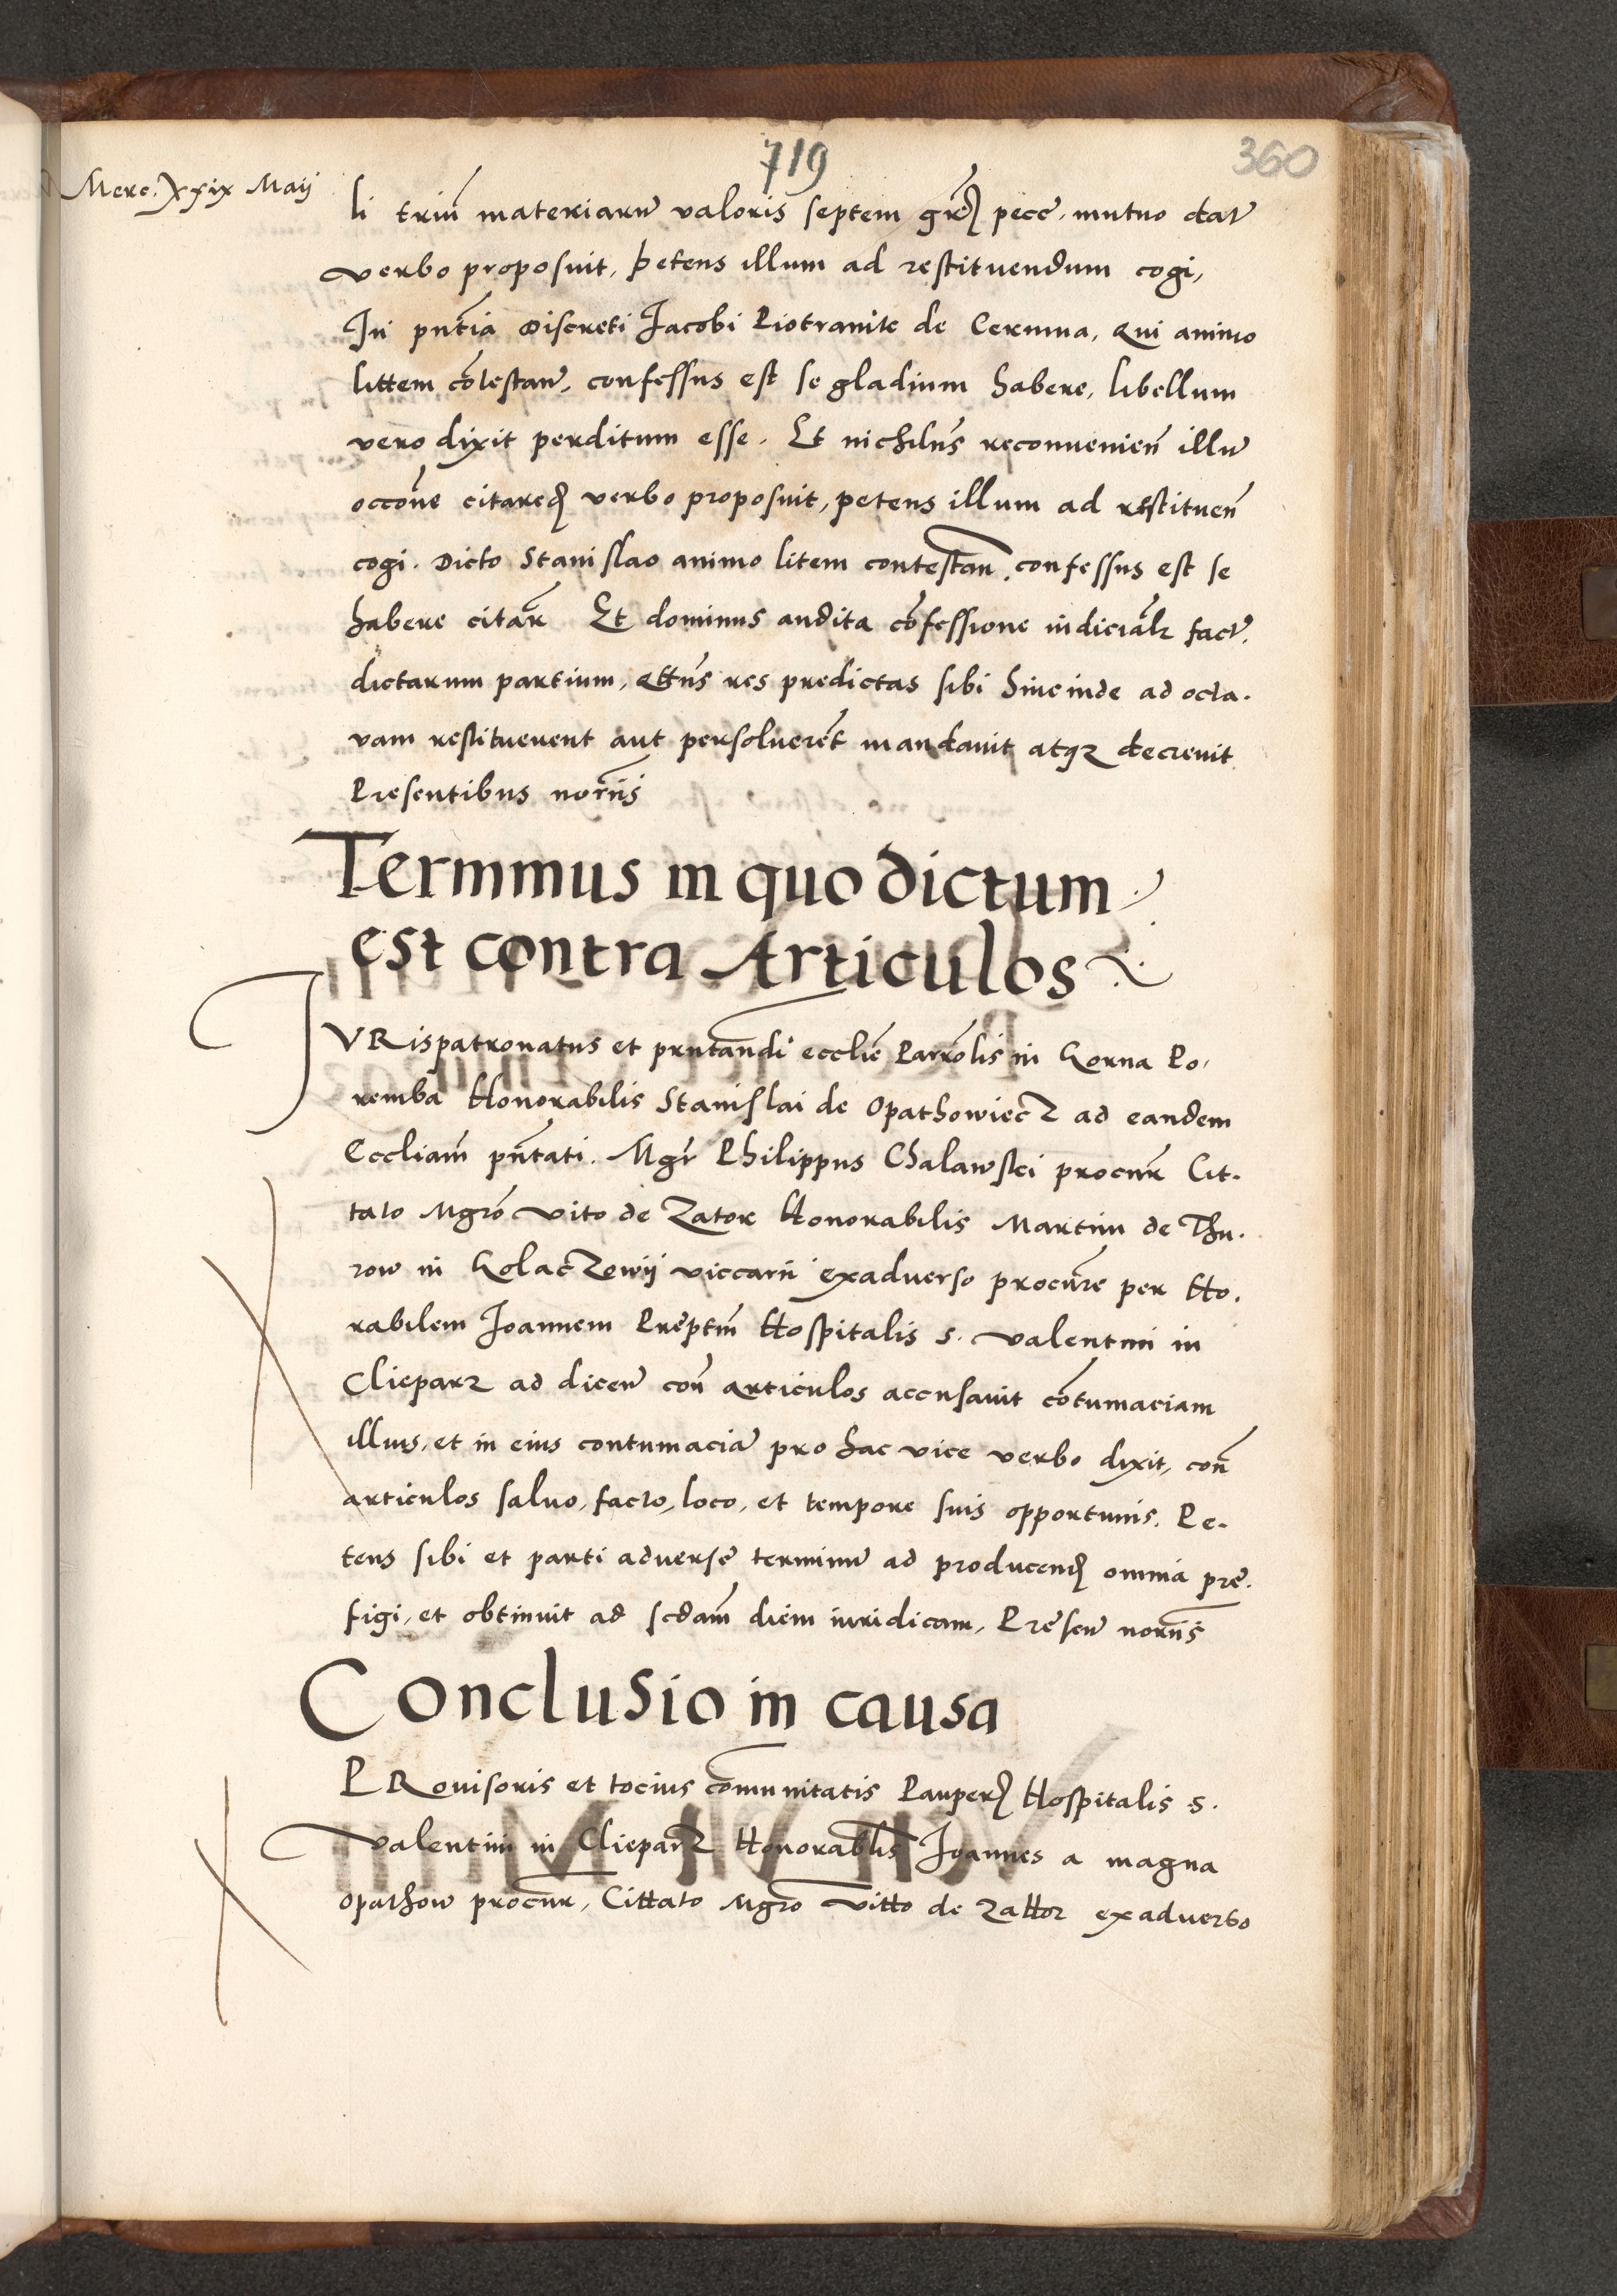 719
360
Merc. xxix Maij
li triũ materiarũ valoris septem gr̃ pecc̃. mutuo dat̃
verbo proposuit, petens illum ad restituendum cogi,
In pñtia Discreti Jacobi Piotranite de Cermna, Qui animo
littem cõtestañ, confessus est se gladium habere, libellum
vero dixit perditum esse. Et nichilũs reconuenieñ illũ
occõne verbo proposuit, petens illum ad restitueñ
cogi. Dicto Stanislao animo litem contestañ, confessus est se
habere citar̃ Et dominus audita cõfessione iudicialr fact̃.
dictarum partium, res predictas sibi hincinde ad octa.
vam restituerent aut persoluerẽt mandauit atq3 decreuit
Presentibus norĩis
Terminus in quo dictum
est contra Articulos
JVRispatronatus et pñtandi ecclie Parrõlis in Gorna Po.
remba Honorabilis Stanislai de Opathowiecz ad eandem
Eccliam pñtati. Mgr̃ Philippus Chalawski procur̃ Cit.
tato Mgrõ Vito de Zator Honorabilis Martini de Thu.
row in Golaczewij viccarii exaduerso procur̃e per Ho.
rabilem Joannem Preptm̃ Hospitalis S. Valentini in
Clieparz ad diceñ coñ articulos accusauit cõtumaciam
illius, et in eius contumaciã pro hac vice verbo dixit, coñ
articulos saluo, facto, loco, et tempore suis opportunis. Pe.
tens sibi et parti aduerse terminũ ad producend̃ omnia pre.
figi, et obtinuit ad scdam̃ diem iuridicam, Preseñ norĩis
Conclusio in causa
PRouisoris et tocius comunitatis Pauper̃ Hospitalis S.
Valentini in Clieparz Honorablis Joannes a magna
Opathow procur̃, Cittato Mgrõ Vitto de Zattor exaduerso